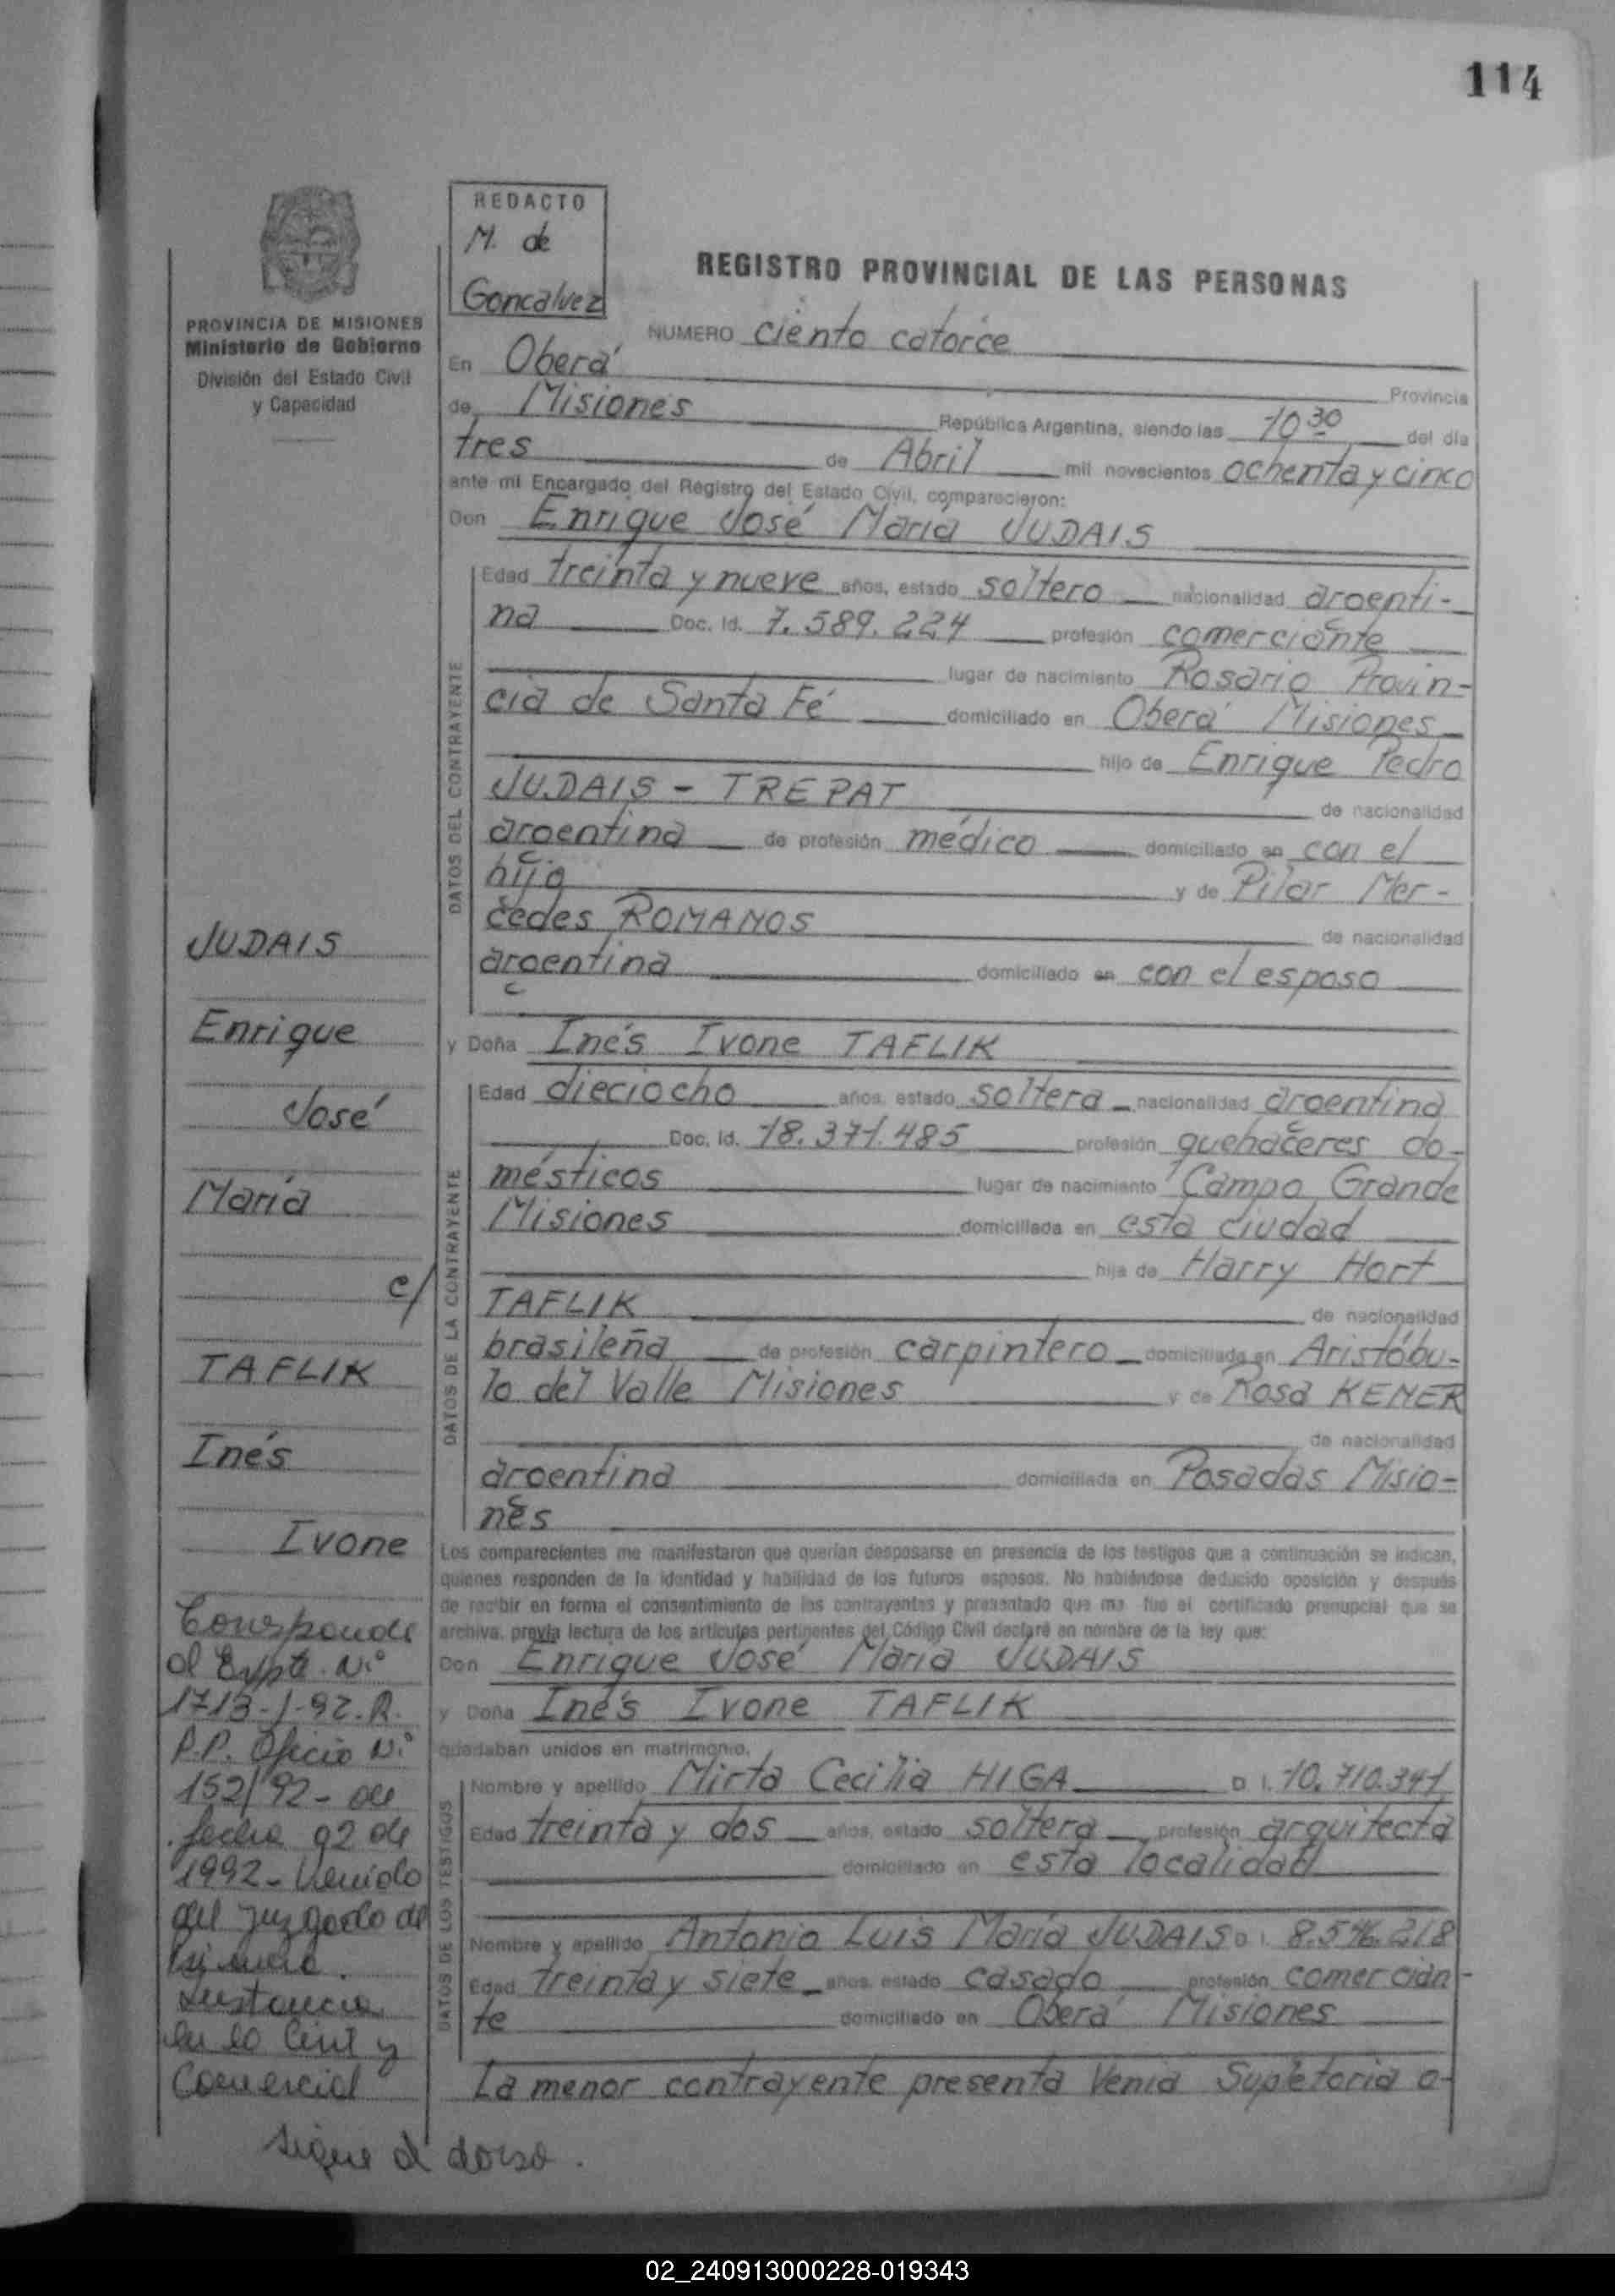 114
REDACTO
M. de
Goncalvez
REGISTRO PROVINCIAL DE LAS PERSONAS
PROVINCIA DE MISIONES
Ministerio de Gobierno
División del Estado Civil
y Capacidad
NUMERO ciento catorce
En Oberá Provincia
de Misiones República Argentina, siendo las 10 30 del día
tres de Abril mil novecientos ochenta y cinco
ante mi Encargado del Registro del Estado Civil, comparecieron:
Don Enrique José María JUDAIS
DATOS DEL CONTRAYENTE
Edad treinta y nueve años, estado soltero nacionalidad argenti-
na Doc. Id. 7.589.224 profesión comerciante
lugar de nacimiento Rosario Provin-
cia de Santa Fé domiciliado en Oberá Misiones
hijo de Enrique Pedro
JUDAIS - TREPAT de nacionalidad
argentina de profesión médico domiciliado en con el
hijo y de Pilar Mer-
cedes ROMANOS de nacionalidad
argentina domiciliado en con el esposo
y Doña Inés Ivone TAFLIK
DATOS DE LA CONTRAYENTE
Edad dieciocho años, estado soltera nacionalidad argentina
Doc. Id. 18.371.485 profesión quehaceres do-
mésticos lugar de nacimiento Campo Grande
Misiones domiciliada en esta ciudad
hija de Harry Hort
TAFLIK de nacionalidad
brasileña de profesión carpintero domiciliada en Aristóbu-
lo del Valle Misiones y de Rosa KEMER
de nacionalidad
argentina domiciliada en Posadas Misio-
nes
Los comparecientes me manifestaron que querían desposarse en presencia de los testigos que a continuación se indican,
quienes responden de la identidad y habilidad de los futuros esposos. No habiéndose deducido oposición y después
de recibir en forma el consentimiento de los contrayentes y presentado que me fue el certificado prenupcial que se
archiva, previa lectura de los artículos pertinentes del Código Civil declaré en nombre de la ley que:
Don Enrique José María JUDAIS
y Doña Inés Ivone TAFLIK
quedaban unidos en matrimonio.
DATOS DE LOS TESTIGOS
Nombre y apellido Mirta Cecilia HIGA D.I. 10.710.341
Edad treinta y dos años, estado soltera profesión arquitecta
domiciliado en esta localidad
Nombre y apellido Antonio Luis María JUDAIS D.I. 8.546.218
Edad treinta y siete años, estado casado profesión comercian-
te domiciliado en Oberá Misiones
La menor contrayente presenta Venia Supletoria o-
JUDAIS
Enrique
José
María
c/
TAFLIK
Inés
Ivone
Corresponde
al Expte. Nº
1713-J-92.R.
P.P. Oficio Nº
152/92- de
fecha 92 de
1992- Venido
del Juzgado de
Instancia
en lo Civil y
Comercial
sigue al dorso.
02_240913000228-019343